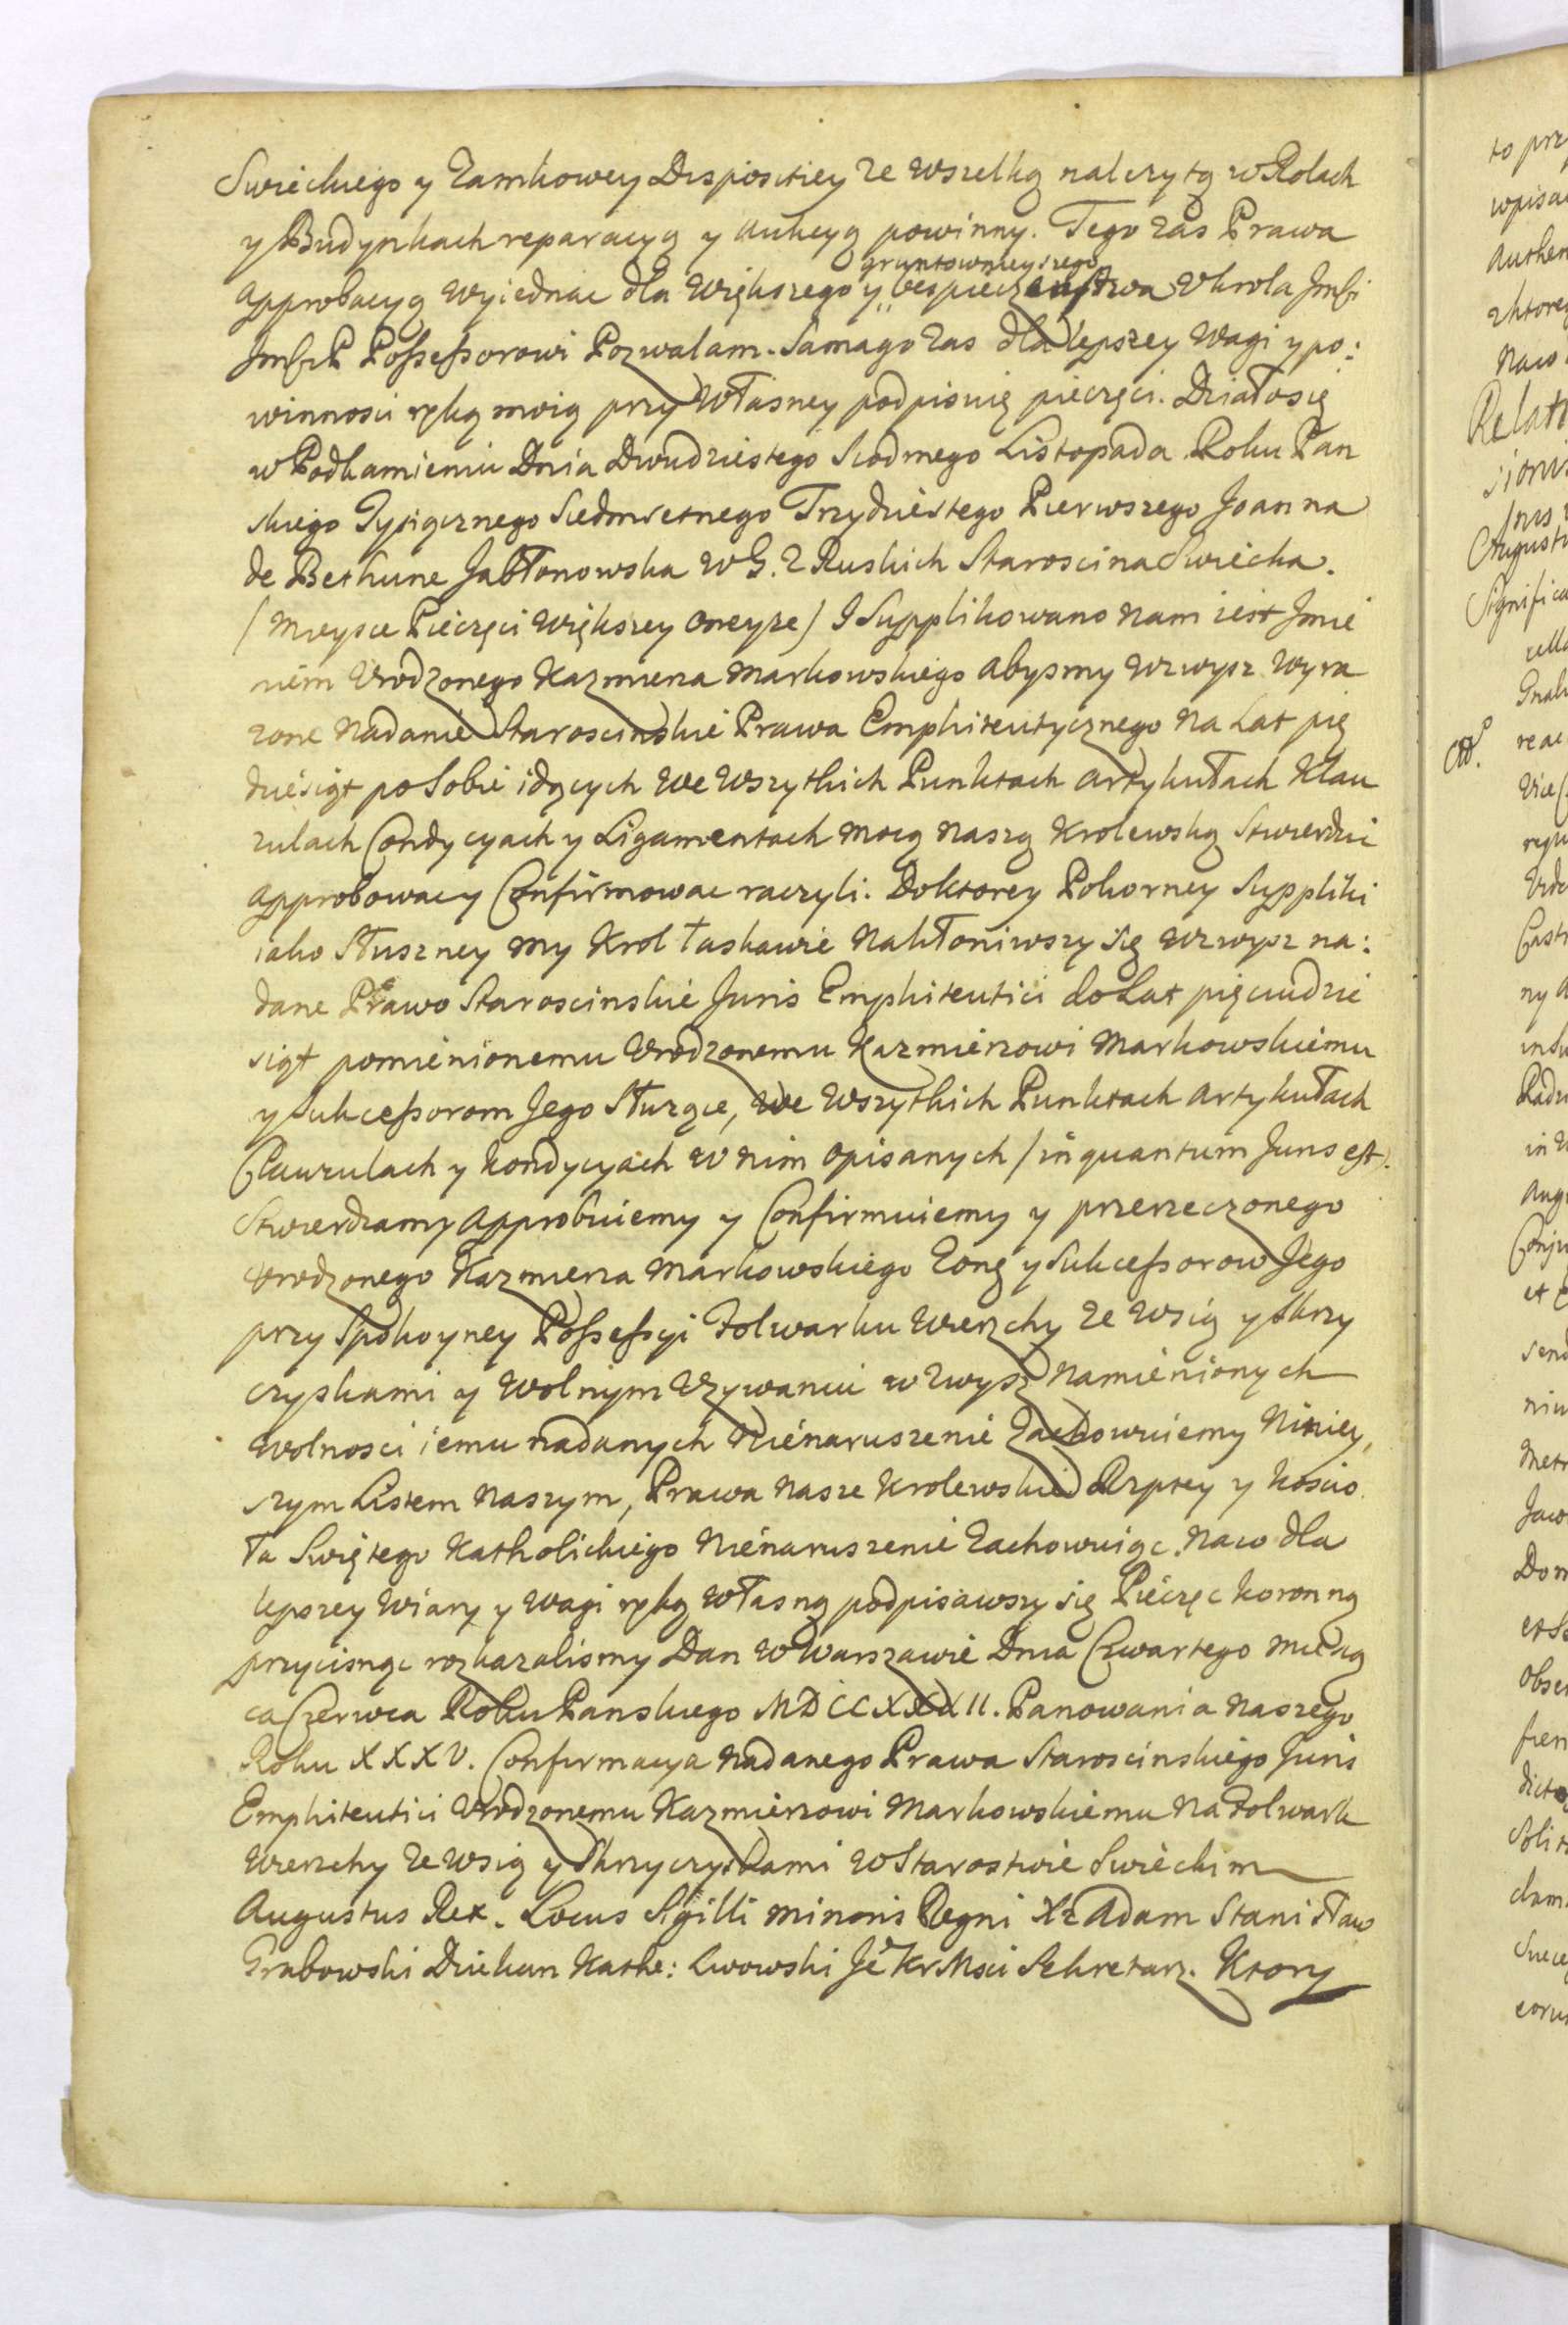 Swieckiego y Zamkowey Dispositiey ze wszelką należytą w Rolach
y Budynkach reparacyą y aukcyą powinny. Tego zas Prawa
gruntownieyszego
approbacyą wyiednac dla większego y bespieczenstwa Vkrola Jmści
Possessorowi Pozwalam. Samago zas dla lepszey Wagi y po:
winnosci ręką moią przy Własney podpisuię pieczęci. Działosię
w Podkamieniu Dnia Dwudziestego Siodmego Listopada Roku Pan
skiego Tysiącznego Siedmsetnego Trzydziestego Pierwszego Joanna
de Bethune Jabłonowska W G. Z Ruskich Staroscina Swiecka.
/Mieysce Pieczęci Większey oneyze/ I Supplikowano Nam iest Jmie
niem Vrodzonego Kazmierza Markowskiego abysmy wzwysz wyra
zone Nadanie Staroscinskie Prawa Emphiteutycznego na Lat pię
dziesiąt po Sobie idących We Wszytkich Punktach artykułach Klau
zulach Condycyach y Ligamentach mocą naszą Krolewską Stwierdzic
approbowac y Confirmowac raczyli. Doktorey Pokorney Suppliki
iako Słuszney my Krol łaskawie Nakłoniwszy się wzwysz na:
dane Prawo Staroscinskie Juris Emphiteutici do Lat pięciudzie
siąt pomienionemu Vrodzonemu Kazmierzowi Markowskiemu
y Sukcessorom Jego Słuzące, We Wszytkich Punktach artykułach
Clauzulach y kondycyach w nim opisanych /in quantum Juris est/.
Stwierdzamy approbuiemy y Confirmuiemy y przerzeczonego
Vrodzonego Kazmierza Markowskiego Zonę y Sukcessorow Jego
przy Spokoyney Possessyi Folwarku Wierzchy ze Wsią y Skrzy
czyskami y Wolnym Vzywaniu w Zwysz Namienionych
Wolnosci iemu nadanych Nienaruszenie Zachowuiemy Niniey,
szym Listem Naszym, Prawa Nasze Krolewskie Rzptey y Koscio
ła Swiętego Katholickiego Nienaruszenie Zachowuiąc. Na co dla
lepszey Wiary y Wagi ręką Własną podpisawszy się Pieczęc koronną
przycisnąc rozkazalismy Dan W Warszawie Dnia Czwartego Miesią
ca Czerwca Roku Panskiego MDCCXXXII. Panowania Naszego
Roku XXXV. Confirmacya Nadanego Prawa Staroscinskiego Juris
Emphiteutici Vrodzonemu Kazmierzowi Markowskiemu Na Folwark
Wierzchy ze Wsią y Skrzyczyskami W Starostwie Swieckim
Augustus Rex. Locus Sigilli minoris Regni Xz Adam Stanisław
Grabowski Dziekan Kathe: Lwowski Je Kr Msci Sekretarz. Ktory
to prz
wpisa
Authen
zktore
Relati
August
Significa